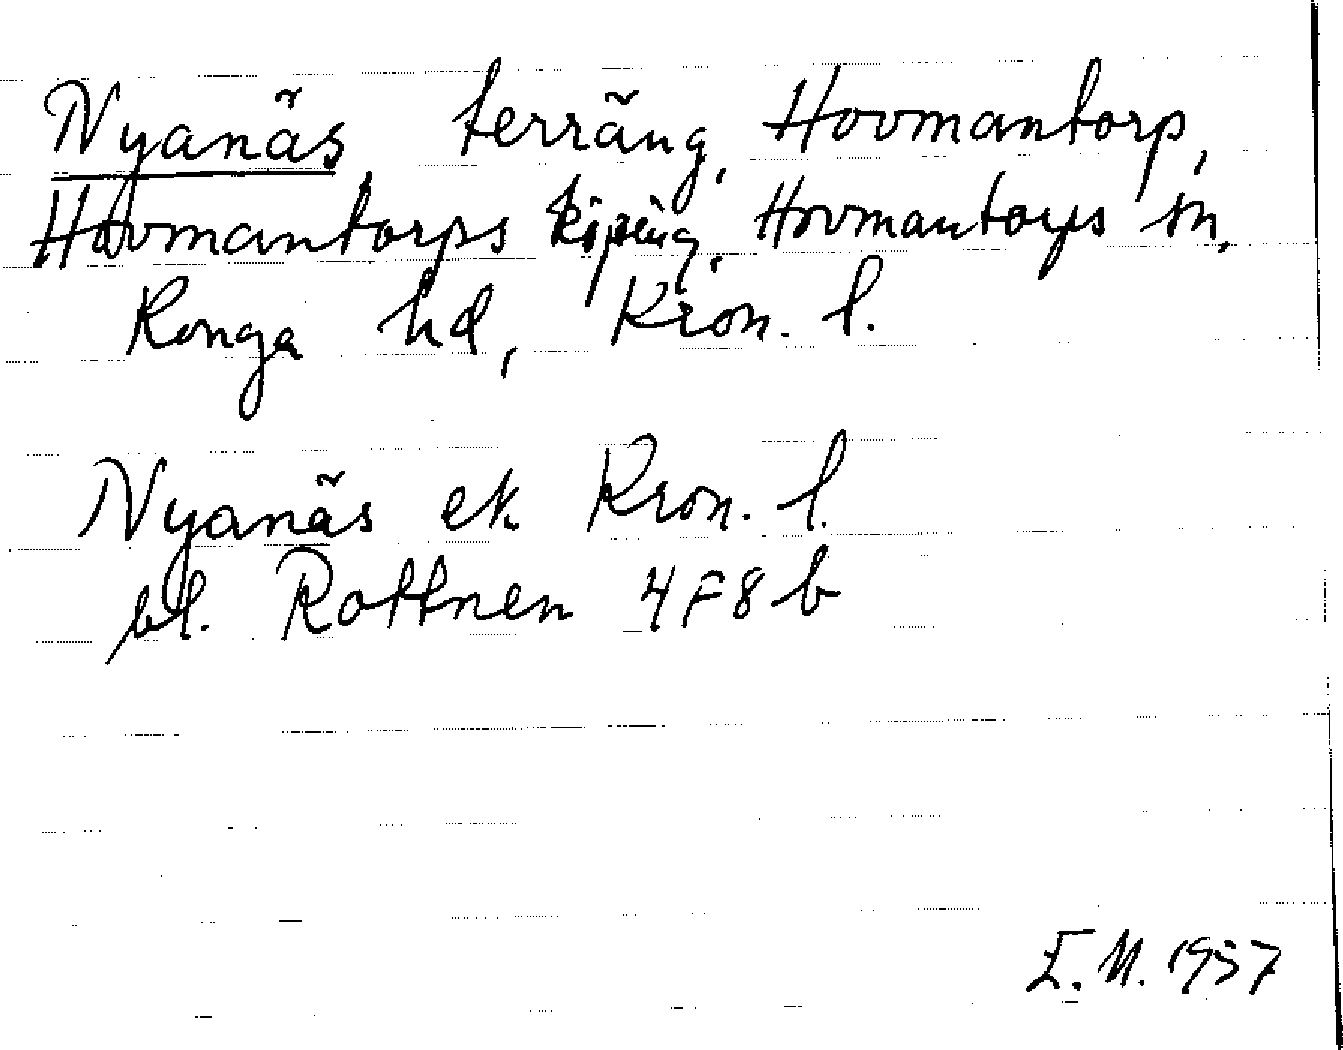 Nyanäs terräng, Hovmantorp,
Hovmantorps köping, Hovmantorps sn,
Konga hd, Kron. l.
Nyanäs ek Kron. l.
bl. Rottnen 4F8b
E.M. 1957